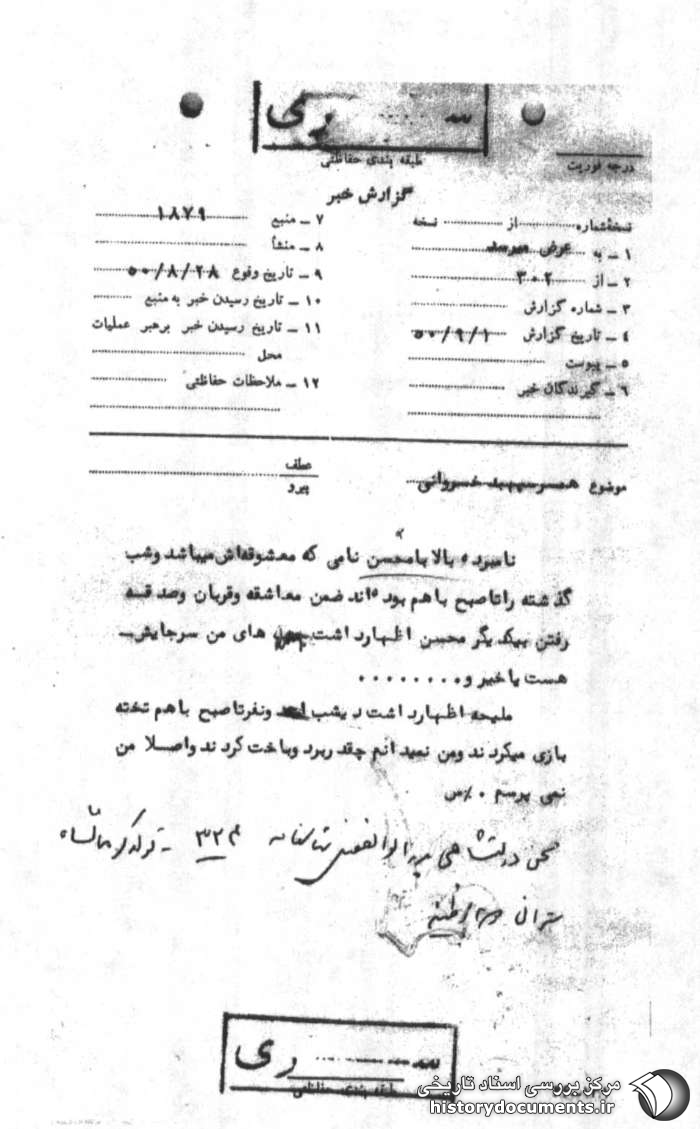 سری
طبقه بندی حفاظتی
درجه فوریت
گزارش خبر
نسخه شماره .......... از .......... نسخه
۱ ـ به عرض میرسد
۲ ـ از ۳۰۲
۳ ـ شماره گزارش
۴ ـ تاریخ گزارش ۵۰/۹/۱
۵ ـ پیوست
۶ ـ گیرندگان خبر
۷ ـ منبع ۱۸۷۹
۸ ـ منشأ
۹ ـ تاریخ وقوع ۵۰/۸/۲۸
۱۰ ـ تاریخ رسیدن خبر به منبع
۱۱ ـ تاریخ رسیدن خبر برهبر عملیات
محل
۱۲ ـ ملاحظات حفاظتی
موضوع همسر سپهبد خسروانی
عطف
پیرو
نامبرده بالا بامحسن نامی که معشوقه‌اش میباشد وشب
گذشته راتاصبح باهم بوده اند ضمن معاشقه وقربان وصدقه
رفتن بیکدیگر محسن اظهارداشت های من سرجایش ـ
هست یاخیر و ۰۰۰۰۰۰۰۰
ملیحه اظهارداشت دیشب ونفرتاصبح باهم تخته
بازی میکردند ومن نمیدانم چقدربرد وباخت کردند واصلا من
نمی پرسم ۰
محسن دولتشاهی ابوالفضل شناسنامه ۳۲۴ کرمانشاه
سری
طبقه بندی حفاظتی
مرکز بررسی اسناد تاریخی
historydocuments.ir